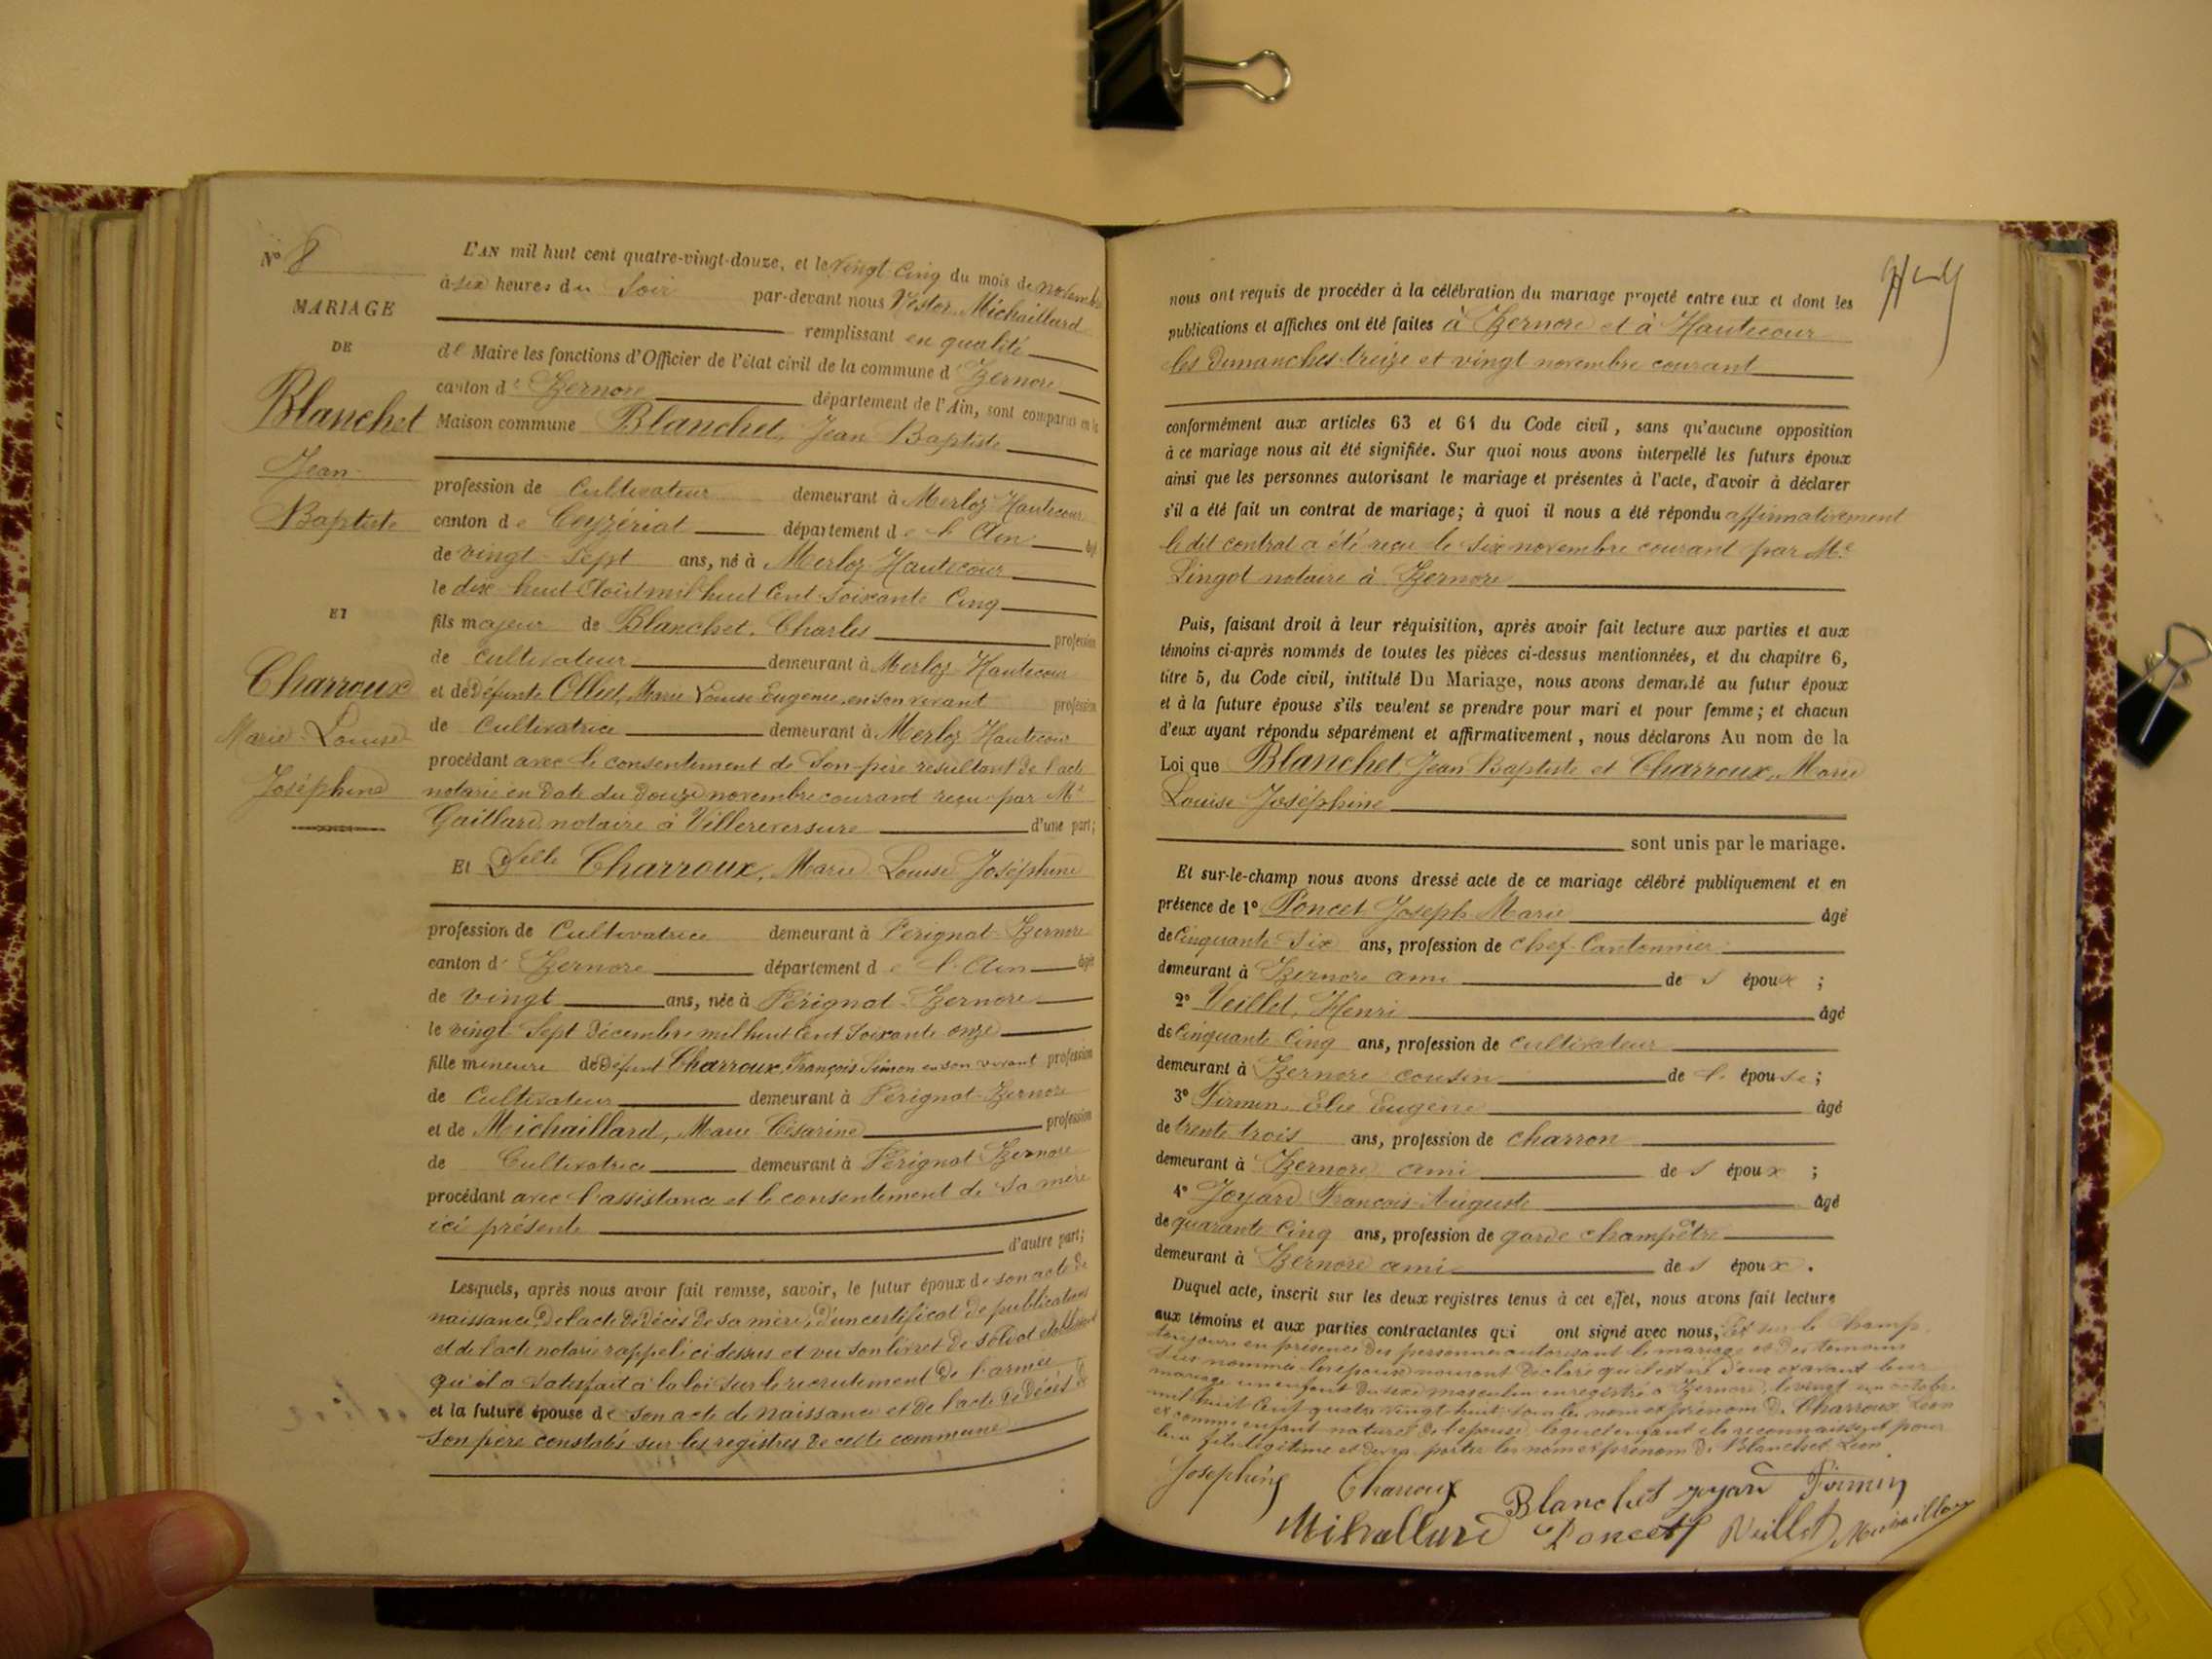 N° 8
MARIAGE
DE
Blanchet
Jean
Baptiste
ET
Charroux
Marie Louise
Joséphine
L'AN mil huit cent quatre-vingt-douze, et le vingt-cinq du mois de novembre
à six heures du soir par-devant nous Nestor Michaillard
remplissant en qualité
de Maire les fonctions d'Officier de l'état civil de la commune d'Izernore
canton d'Izernore département de l'Ain, sont comparus en la
Maison commune Blanchet, Jean Baptiste
profession de Cultivateur demeurant à Merloz Hautecour
canton de Ceyzériat département de l'Ain âgé
de vingt-sept ans, né à Merloz Hautecour
le dix huit Août mil huit cent soixante cinq
fils majeur de Blanchet, Charles profession
de cultivateur demeurant à Merloz Hautecour
et de Défunte Olliet, Marie Louise Eugénie, en son vivant profession
de Cultivatrice demeurant à Merloz Hautecour
procédant avec le consentement de son père résultant de l'acte
notarié en date du douze novembre courant reçu par Me
Gaillard, notaire à Villereversure d'une part;
Et Delle Charroux, Marie Louise Joséphine
profession de Cultivatrice demeurant à Pérignat-Izernore
canton d'Izernore département de l'Ain âgée
de vingt ans, née à Pérignat-Izernore
le vingt sept Décembre mil huit cent soixante onze
fille mineure de Défunt Charroux, François Simon en son vivant profession
de Cultivateur demeurant à Pérignat-Izernore
et de Michaillard, Marie Césarine profession
de Cultivatrice demeurant à Pérignat Izernore
procédant avec l'assistance et le consentement de sa mère
ici présente
d'autre part;
Lesquels, après nous avoir fait remise, savoir, le futur époux de son acte de
naissance, de l'acte de décès de sa mère, d'un certificat de publications
et de l'acte notarié rappelé ci dessus et vu son livret de soldat établissant
qu'il a satisfait à la loi sur le recrutement de l'armée
et la future épouse de son acte de naissance et de l'acte de décès de
son père constatés sur les registres de cette commune
nous ont requis de procéder à la célébration du mariage projeté entre eux et dont les
publications et affiches ont été faites à Izernore et à Hautecour
les dimanches treize et vingt novembre courant
conformément aux articles 63 et 64 du Code civil, sans qu'aucune opposition
à ce mariage nous ait été signifiée. Sur quoi nous avons interpellé les futurs époux
ainsi que les personnes autorisant le mariage et présentes à l'acte, d'avoir à déclarer
s'il a été fait un contrat de mariage; à quoi il nous a été répondu affirmativement
le dit contrat a été reçu le six novembre courant par Me
Lingot notaire à Izernore
Puis, faisant droit à leur réquisition, après avoir fait lecture aux parties et aux
témoins ci-après nommés de toutes les pièces ci-dessus mentionnées, et du chapitre 6,
titre 5, du Code civil, intitulé Du Mariage, nous avons demandé au futur époux
et à la future épouse s'ils veulent se prendre pour mari et pour femme; et chacun
d'eux ayant répondu séparément et affirmativement, nous déclarons Au nom de la
Loi que Blanchet, Jean Baptiste et Charroux, Marie
Louise Joséphine
sont unis par le mariage.
Et sur-le-champ nous avons dressé acte de ce mariage célébré publiquement et en
présence de 1° Poncet, Joseph Marie âgé
de cinquante six ans, profession de chef-Cantonnier
demeurant à Izernore ami de s époux ;
2° Veillet, Henri âgé
de cinquante cinq ans, profession de cultivateur
demeurant à Izernore cousin de l' épouse ;
3° Firmin, Elie Eugène âgé
de trente trois ans, profession de charron
demeurant à Izernore ami de s époux ;
4° Joyard François Auguste âgé
de quarante cinq ans, profession de garde champêtre
demeurant à Izernore ami de s époux .
Duquel acte, inscrit sur les deux registres tenus à cet effet, nous avons fait lecture
aux témoins et aux parties contractantes qui ont signé avec nous, Et sur le champ
toujours en présence des personnes autorisant le mariage et des témoins
sus nommés les époux nous ont déclaré qu'il est né d'eux et avant leur
mariage un enfant du sexe masculin enregistré à Izernore, le vingt un octobre
mil huit cent quatre vingt huit sous les nom et prénom de Charroux Léon
et comme enfant naturel de l'épouse, lequel enfant ils reconnaissent pour
leur fils légitime et devra porter les nom et prénom de Blanchet, Léon
Josephine Charroux Blanchet joyard Firmin
Poncet Veillet Michaillard